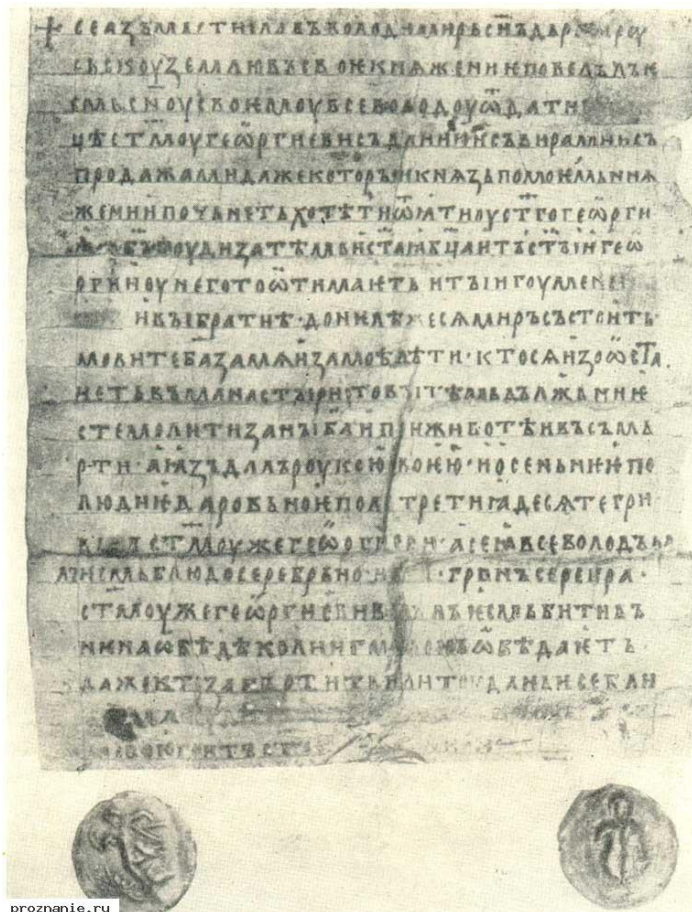 + се азъ мьстиславъ володимирь сн҃ъ дьржа роу
сьскоу землю въ свое кнѧжениѥ повелѣлъ ѥ
смь сн҃оу своѥмоу всеволодоу ѿдати
цѣ ст҃моу геѡргиеви съ даниѥю и съ вирами и съ
продажами даже которыи кнѧзь по моѥмь кнѧ
жении почьнеть хотѣти ѿѧти оу ст҃го геѡрги
ѧ а б҃ъ боуди за тѣмь и ст҃аꙗ бц҃а и тъ ст҃ыи геѡ
ргии оу него то ѿимаѥть и ты игоумене
и вы братиѣ · донелѣже сѧ миръ състоить ·
молите б҃а за мѧ и за моѣ дѣти · кто сѧ изоѡста
неть въ манастыри то вы тѣмь дължьни ѥ
сте молити за ны б҃а и при животѣ и въ съмь
рти · а ꙗзъ далъ роукою своѥю · и осеньнеѥ по
людиѥ даровьноѥ полътретиꙗ десѧте гри
вьнъ ст҃моу же геѡргиеви · а се ꙗ всеволодъ да
лъ ѥсмь блюдо серебрьно · грв҃нъ серебра ·
ст҃моу же геѡргиеви велѣлъ ѥсмь бити въ
нѥ на ѡбѣдѣ коли игоуменъ ѡбѣдаѥть ·
даже кто запъртить или тоу дань и се блю